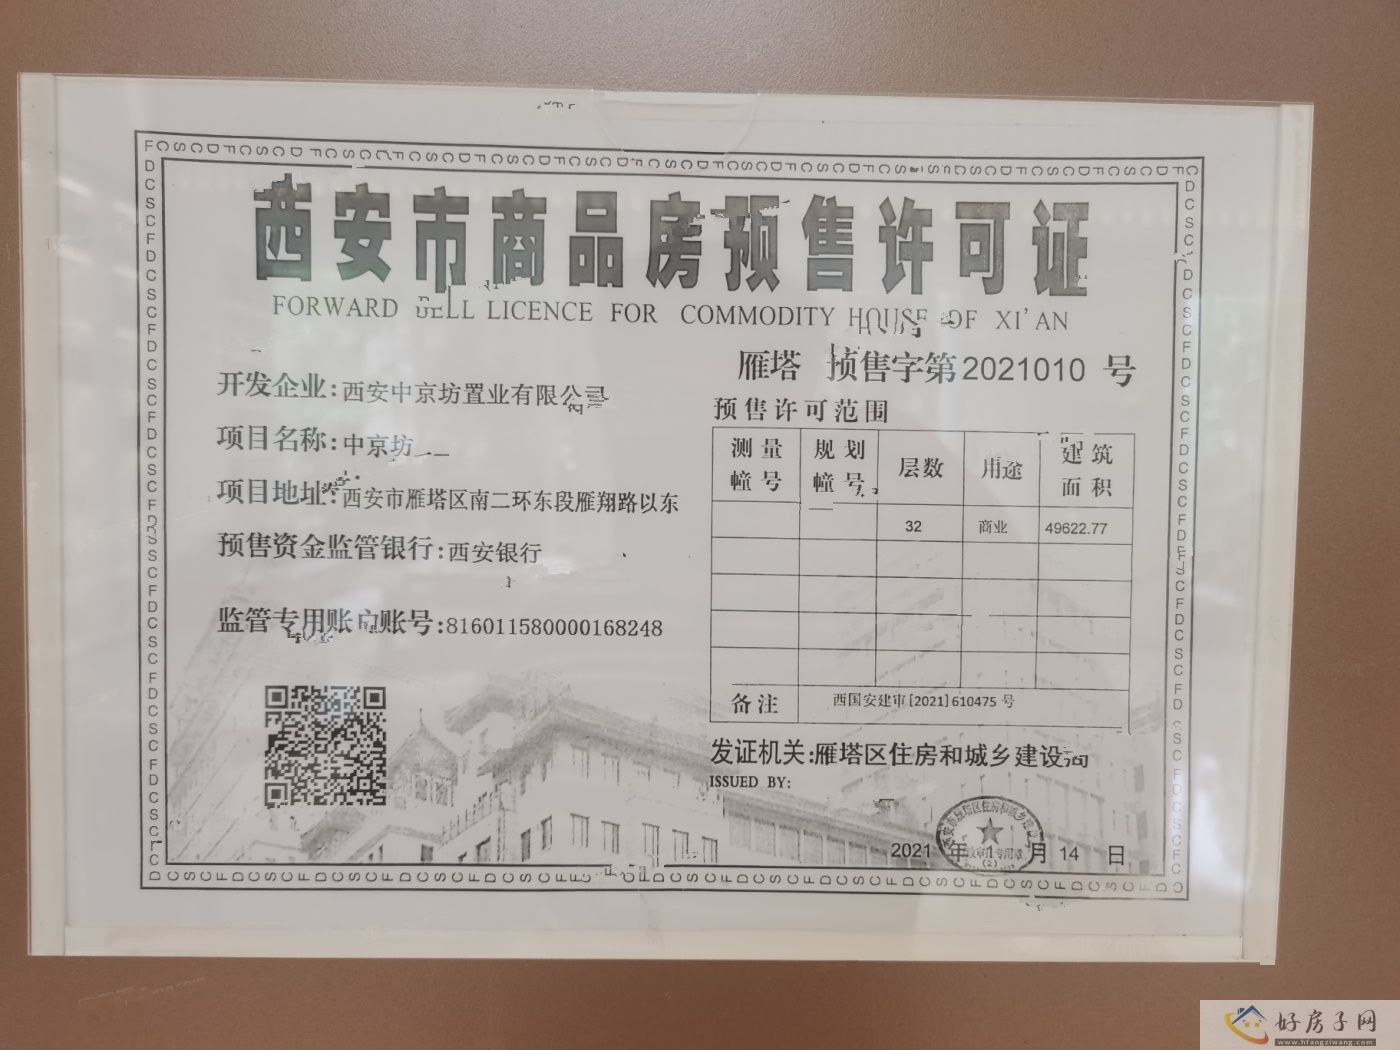 西安市商品房预售许可证
FORWARD SELL LICENCE FOR COMMODITY HOUSE OF XI'AN
雁塔 预售字第2021010 号
开发企业:西安中京坊置业有限公司
项目名称:中京坊
项目地址:西安市雁塔区南二环东段雁翔路以东
预售资金监管银行:西安银行
监管专用账户账号:816011580000168248
预售许可范围
测量幢号 规划幢号 层数 用途 建筑面积
32 商业 49622.77
备注 西国安建审[2021]610475 号
发证机关:雁塔区住房和城乡建设局
ISSUED BY:
2021 年 月 14 日
好房子网
www.hfangziwang.com